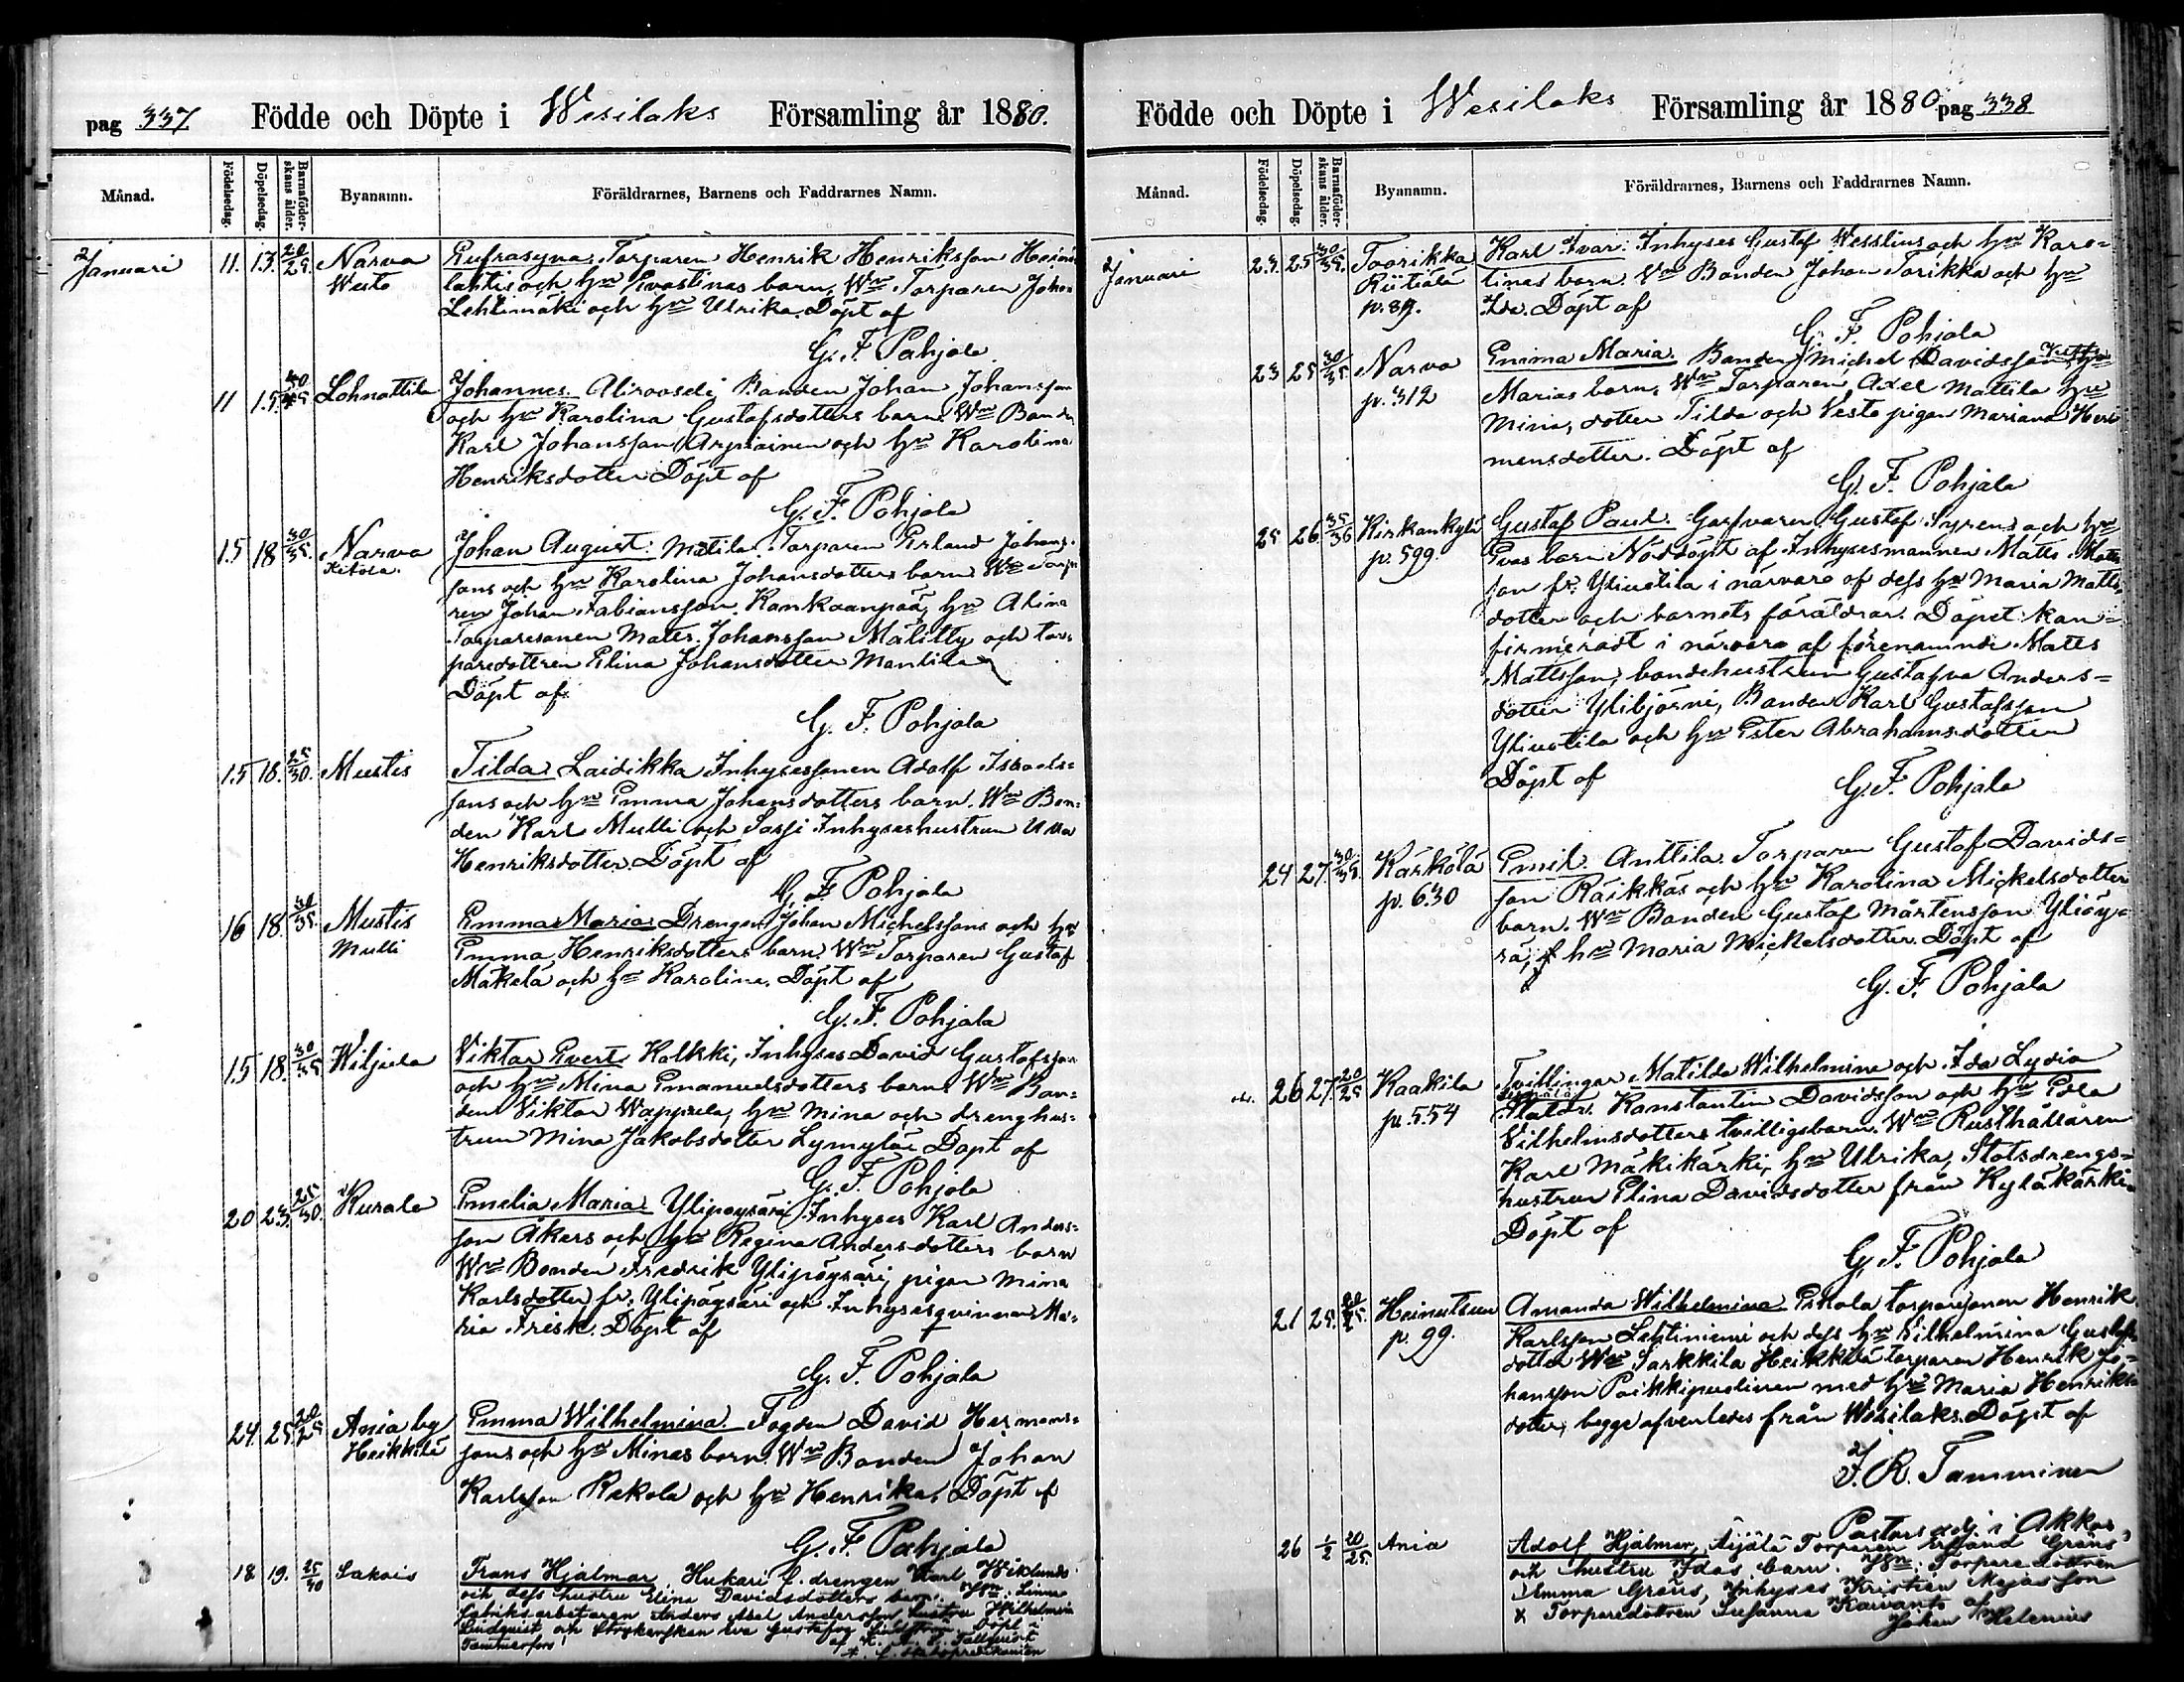 pag 337 Födde och Döpte i Wesilaks Församling år 1880.
Månad. Födelsedag. Döpelsedag. Barnaföderskans ålder. Byanamn. Föräldrarnes, Barnens och Faddrarnes Namn.
Januari 11. 13. 20/25. Narva Eufrasyna. Torparen Henrik Henriksson
Westo lahtis och hru Evastinas barn. Wn Torparen Johan
Lehtimäki och hru Ulrika. Döpt af
G. F. Pohjala
11 15. Lohnattila Johannes. Alirooseli Bonden Johan Johansson
och hru Karolina Gustafsdotters barn. Wn Bonden
Karl Johansson Arpiainen och hru Karolina
Henriksdotter Döpt af
G. F. Pohjala
15 18 30/35. Narva Johan August. Matila. Torparen Erland Johans-
Ketola. sons och hru Karolina Johansdotters barn. Wn Torpa-
ren Johan Fabiansson Kankaanpää, hru Alina
Torparesonen Matts Johansson Mälitty och tor-
paredottren Elina Johansdotter Mantila
Döpt af
G. F. Pohjala
15 18. 25/30. Mustis Tilda Laidikka Inhysessonen Adolf Israels-
sons och hru Emma Johansdotters barn. Wn Bon-
den Karl Mulli och Sassi Inhyseshustrun Ulla
Henriksdotter. Döpt af
G. F. Pohjala
16 18. 30/35. Mustis Emma Maria. Drengen Johan Michelssons och hru
Mulli Emma Henriksdotters barn. Wn Torparen Gustaf
Mäkelä och hru Karolina. Döpt af
G. F. Pohjala
15 18. 30/35 Wiljiala Viktor Evert Kolkki, Inhyses David Gustafsson
och hru Mina Emanuelsdotters barn. Wn Bon-
den Viktor Wappula, hru Mina och drenghus-
trun Mina Jakobsdotter Lymylä Döpt af
G. F. Pohjola
20 23. 25/30. Kurala Emelia Maria Ylipöysäri Inhyses Karl Anders-
son Åkers och hru Regina Andersdotters barn
Wn Bonden Fredrik Ylipöysäri, pigan Mina
Karlsdotter fr. Ylipöysäri och Inhysesqvinnan Ma-
ria Frisk. Döpt af
G. F. Pohjala
24. 25. 20/25 Ania by Emma Wilhelmina. Fogden David Hermans-
Heikkilä sons och hru Minas barn. Wn Bonden Johan
Karlsson Rekola och hru Henrika. Döpt af
G. F. Pohjala
18 19. Sakois Frans Hjalmar Hukari f. drengen Karl Wiklunds
och dess hustru Elina Davidsdotters barn. Wn Linne
fabriksarbetaren Anders Axel Andersson hustru Wilhelmina
Lindqvist och Strykerskan Eva Gustafva Lindström. Döpt i
Tammerfors af
Januari
Födde och Döpte i Wesilaks Församling år 1880 pag 338
Månad. Födelsedag. Döpelsedag. Barnaföderskans ålder. Byanamn. Föräldrarnes, Barnens och Faddrarnes Namn.
23. 25 30/35. Toorikka Karl Ivar. Inhyses Gustaf Wesslins och hru Karo-
Riitiälä linas barn. Wn Bonden Johan Torikka och hru
p. 89. Ida. Döpt af
G. F. Pohjala
23 25 30/35. Narva Emma Maria. Bonden Michel Davidsson Vesto hru
p. 312 Marias barn. Wn Torparen Axel Mattila hru
Mina, dotter Tilda och Vesto pigan Mariana Her-
mansdotter. Döpt af
G. F. Pohjala
25 26 35/36 Kirkonkylä Gustaf Paul. Garfvaren Gustaf Syrens och hru
p. 599. Evas barn Nöddöpt af Inhysesmannen Matts Matts-
son fr. Yliustila i närvaro af dess hru Maria Matts-
dotter och barnets föräldrar. Döpet kon-
firmeradt i närvaro af förenämnde Matts
Mattsson, bondehustrun Gustafva Anders-
dotter Ylibjörni, Bonden Karl Gustafsson
Yliustila och hru Ester Abrahamsdotter
Döpt af G. F. Pohjala
24 27. Kärkölä Emil Anttila. Torparen Gustaf Davids-
p. 630 son Räikkäs och hru Karolina Mickelsdotters
barn. Wn Bonden Gustaf Mårtensson Yliöy-
rä, hru Maria Mickelsdotter. Döpt af
G. F. Pohjala
26 27. 20/25 Kaakila Tvillingar Matilda Wilhelmina och Ida Lydia
p. 554 Konstantin Davidsson och hru Eva
Vilhelmsdotters tvillingsbarn. Wn Rusthållaren
Karl Mäkikärki, hru Ulrika, Statsdrengs-
hustrun Elina Davidsdotter från Kyläkärki.
Döpt af
G. F. Pohjala
21 25. Heinutsun Amanda Wilhelmina Eskola torparesonen Henrik
p. 99. Karlsson Lehtiniemi och dess hru Vilhelmina Gustafs-
dotter Wn Sarkkila Heikkilä torparen Henrik Jo-
hansson Paikkipuolinen med hru Maria Henriks-
dotter, begge afventedes från Wesilaks. Döpt af
J. R. Tamminen
Pastors adj. i Akkas,
26 1/2 20/25 Ania Adolf Hjalmar, Äijälä Torparen Erland Gräns
och hustru Idas barn. Wn. Torpare dottren
Amma Gräns, Inhyses Kristian Majasson
x Torparedottren Susanna Kaivanto af
Johan Helenius